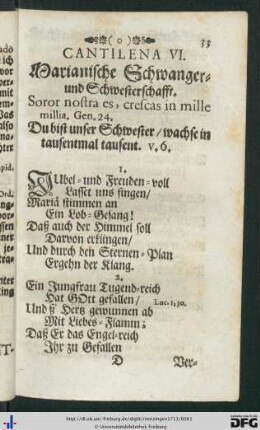 ( o ) 33
CANTILENA VI.
Marianische Schwanger-
und Schwesterschafft.
Soror nostra es, crescas in mille
millia. Gen. 24.
Du bist unser Schwester / wachse in
tausentmal tausent. v. 6.
1.
JUbel- und Freuden-voll
Lasset uns singen /
Mariä stimmen an
Ein Lob-Gesang!
Daß auch der Himmel soll
Darvon erklingen /
Und durch den Sternen-Plan
Ergehn der Klang.
2.
Ein Jungfrau Tugend-reich
Hat GOtt gefallen / Luc. 1, 30.
Und ß' Hertz gewunnen ab
Mit Liebes-Flamm;
Daß Er das Engel-reich
Ihr zu Gefallen
D Ver-
http://dl.ub.uni-freiburg.de/diglit/menzinger1712/0061
© Universitätsbibliothek Freiburg
Gefördert durch
DFG